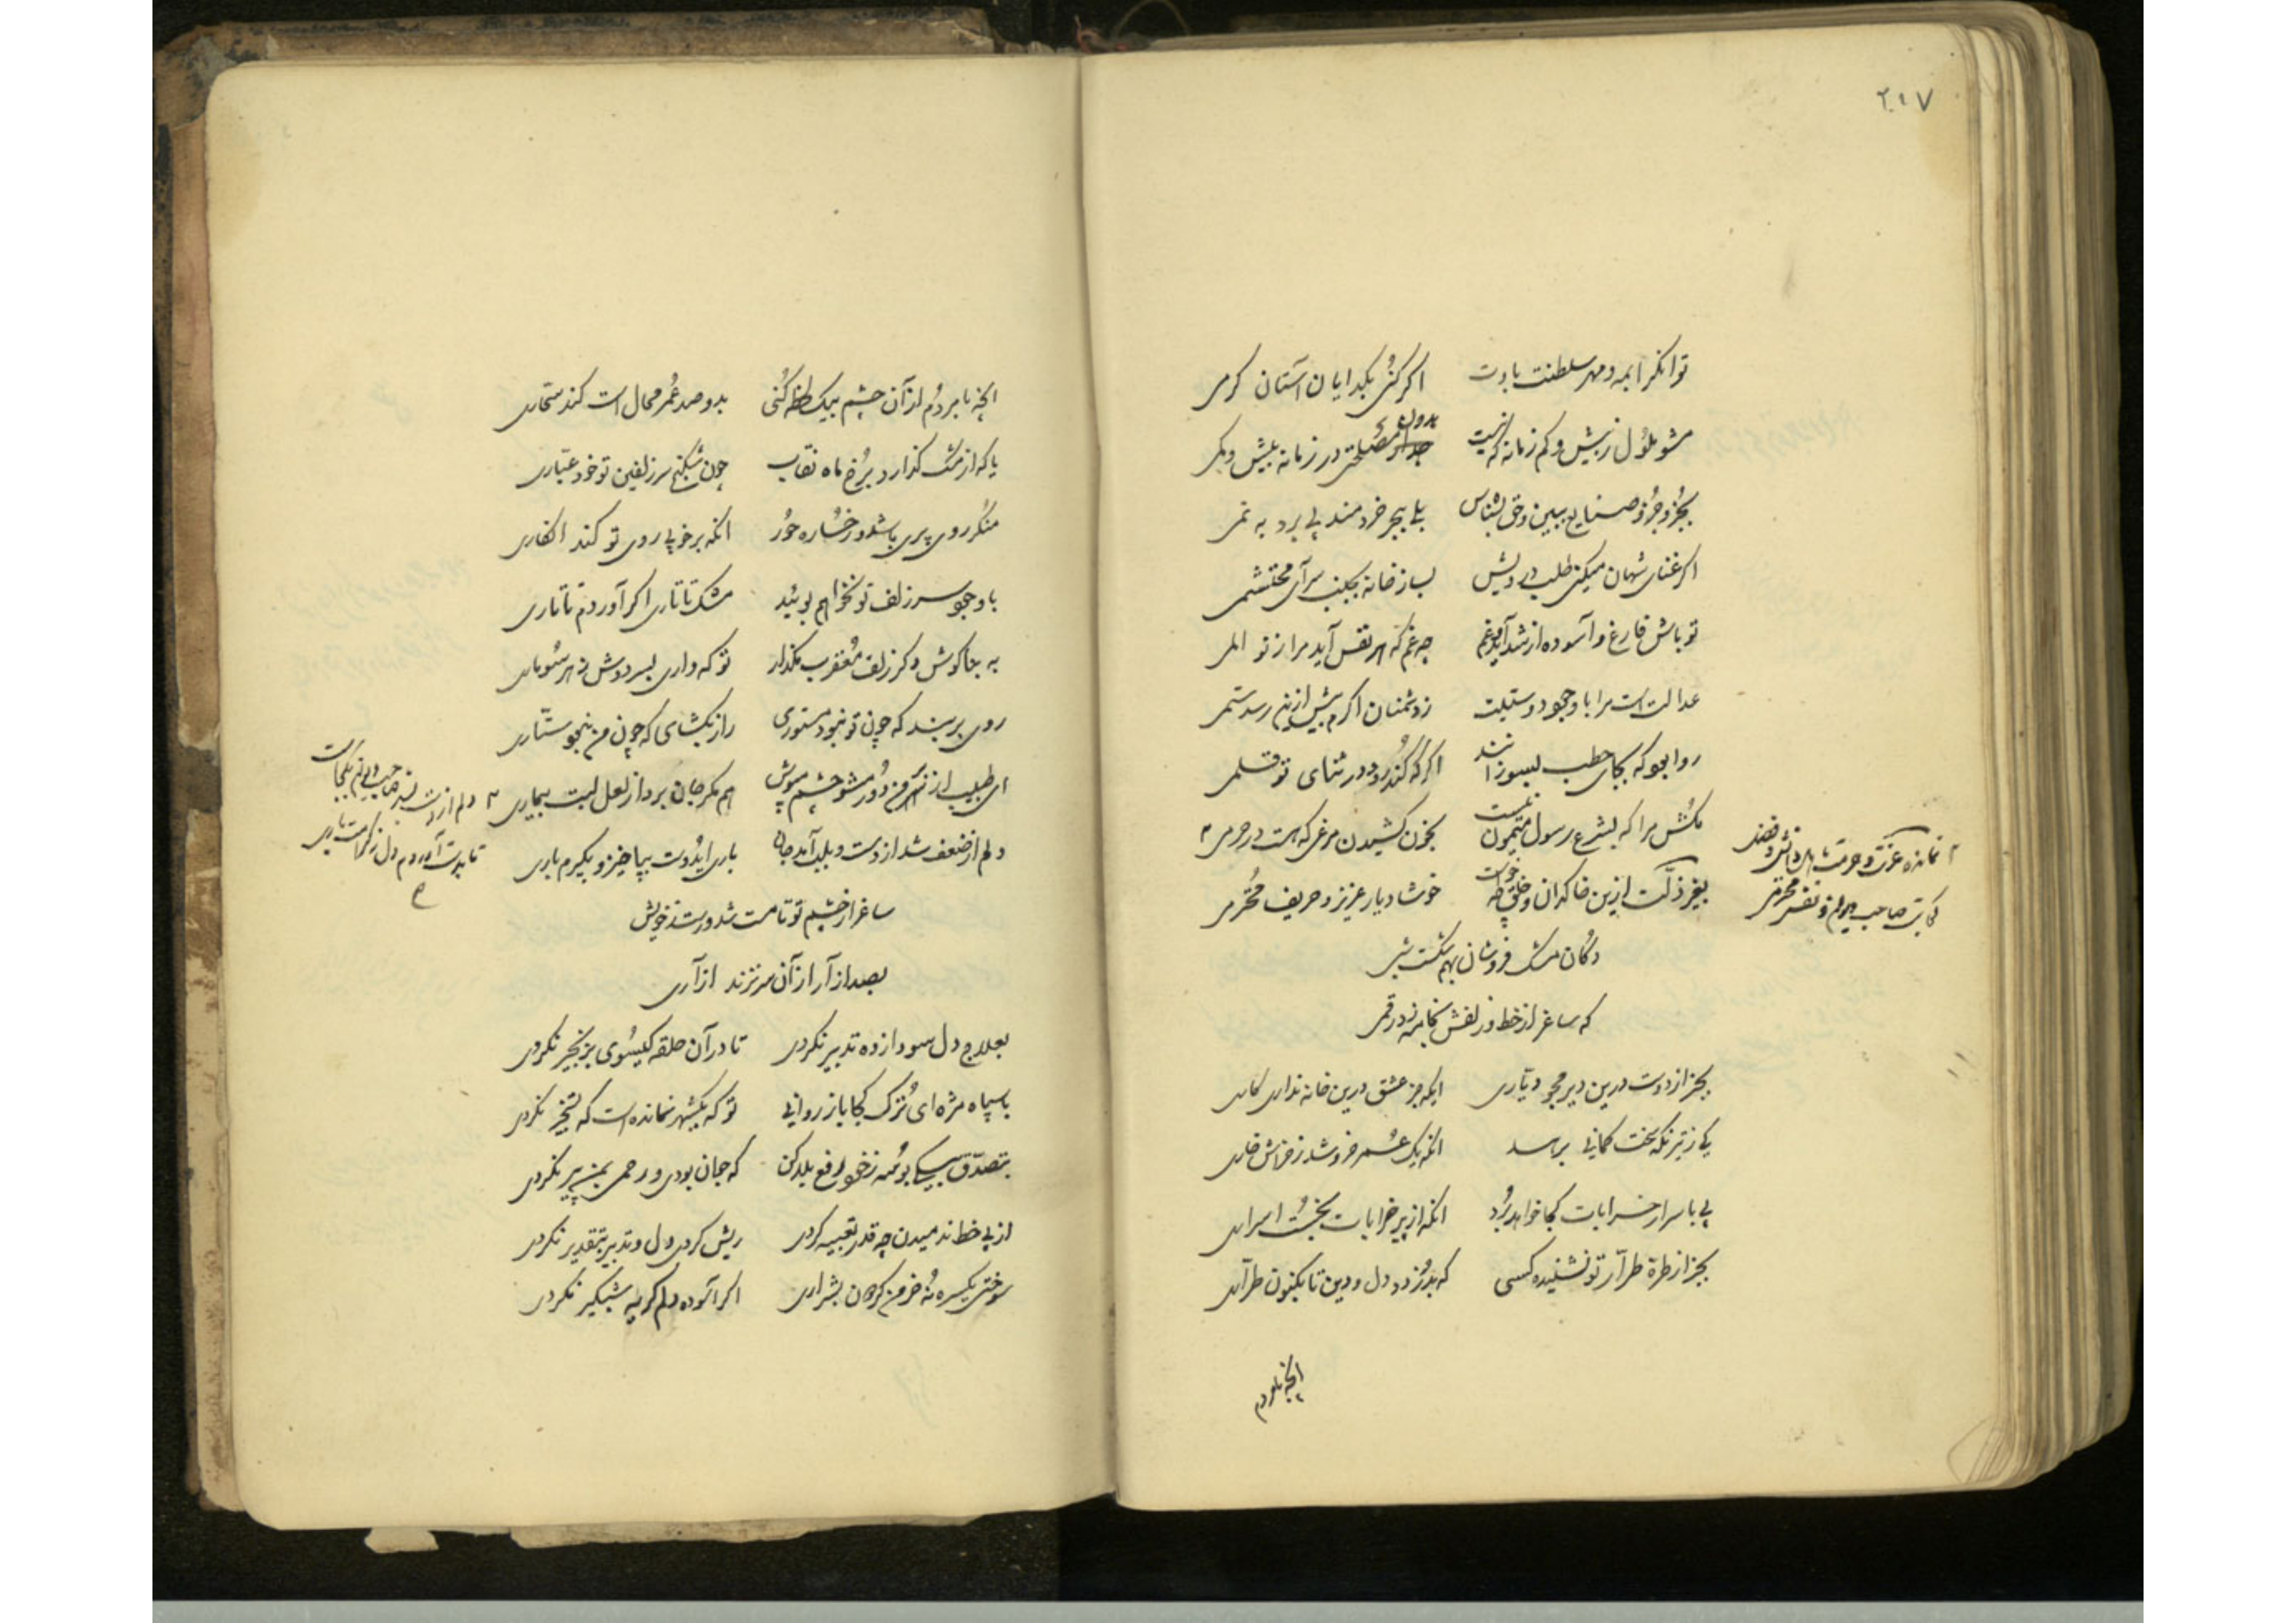 ۲۱۷
توانگرا همه و مهر سلطنت با توست اگر کنی بگدایان آستان کرمی
مشو ملول ز بیش و کم زمانه که نیست بدون مصلحتی در زمانه بیش و کمی
بجزو جزو صنایع ببین و حق بشناس بلی ببحر خردمند پی برد به نمی
اگر غنای شهان میکنی طلب درویش بساز خانه بجنب سرای محتشمی
تو باش فارغ و آسوده از شداید و غم چه غم که هر نفس آید مرا ز تو المی
عدالت است مرا با وجود دوستیت ز دشمنان اگرم بیش ازین رسد ستمی
روا بود که بجای حطب بسوزانند اگر که کند رود در ثنای تو قلمی
مکش مرا که بشرع رسول میمون نیست بخون کشیدن مرغی که هست در حرمی
نمانده عزت و حرمت باهل دانش و فضل
کجاست صاحب جود و نفس محترمی
بغیر ذلت ازین خاکدان و خلق نخواست خوشا دیار عزیز و حریف محترمی
دکان مشک فروشان بهم شکست بشیر
که ساغر از خط و زلفش نگاهرزد رقمی
بجز از دوست درین دیر مجو دیاری ایکه جز عشق درین خانه نداری کاری
یکی ز تیر نگه سخت کمانی برسد آنکه یک عمر خروشد ز خراش خاری
پی باسرار خرابات کجا خواهد برد آنکه از پیر خرابات نجست اسراری
بجز از طره طرار تو نشنیده کسی که بدزدد دل و دین تا بکنون طراری
آنچه با مردم
آنچه با مردم از آن چشم بیک لحظه کنی بدو صد عمر محال است کند سحاری
یا که از مشک گذارد برخ ماه نقاب چون شکنج سر زلفین تو خود عیاری
منکر روی پری باشد و رخساره حور آنکه بر خوبی روی تو کند انکاری
با وجود سر زلف تو نخواهم بوئید مشک تاتاری اگر آوردم تاتاری
به بناگوش دگر زلف معقرب مگذار تو که داری بسر دوش ز هر سو ماری
روی بر بند که چون تو نبود مستوری راز بگشای که چون من نبود ستاری
ای طبیب از سر من دور مشو چشم مپوش هم مگر جان برد از لعل لبت بیماری
دلم از دست بشد صاحب دلی نیز کجاست
تا بدست آورم دل ز کرامت باری
دلم از ضعف شد از دست و بلب آمد جان باری ایدوست بپا خیز و بگیرم باری
ساغر از چشم تو تا مست شد و رست ز خویش
بصد آزار از آن سر نزند آزاری
بعلاج دل سودا زده تدبیر نکردی تا در آن حلقه گیسوی بزنجیر نکردی
با سپاه مژه ای ترک کجا باز روانی تو که یکشهر نمانده است که تسخیر نکردی
بتصدق بیکی بوسه ز خود رفع بلا کن که جوان بودی و رحمی بمن پیر نکردی
از پی خط ندمیدن چه قدر تعبیه کردی ریش کردی دل و تدبیر بتقدیر نکردی
سوختی یکسره نه خرمن گردون بشراری اگر آسوده دلم گریه شبگیر نکردی